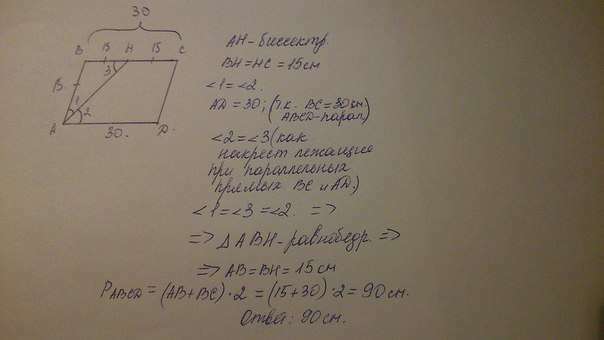 30
B 15 H 15 C
15
3
1
2
A 30. D.
AH - биссектр.
BH = HC = 15 см
∠1 = ∠2.
AD = 30; (т.к. BC = 30 см)
ABCD - парал)
∠2 = ∠3 (как
накрест лежащие
при параллельных
прямых BC и AD.)
∠1 = ∠3 = ∠2. =>
=> △ABH - равнобедр. =>
=> AB = BH = 15 см
P ABCD = (AB + BC) · 2 = (15 + 30) · 2 = 90 см.
Ответ: 90 см.